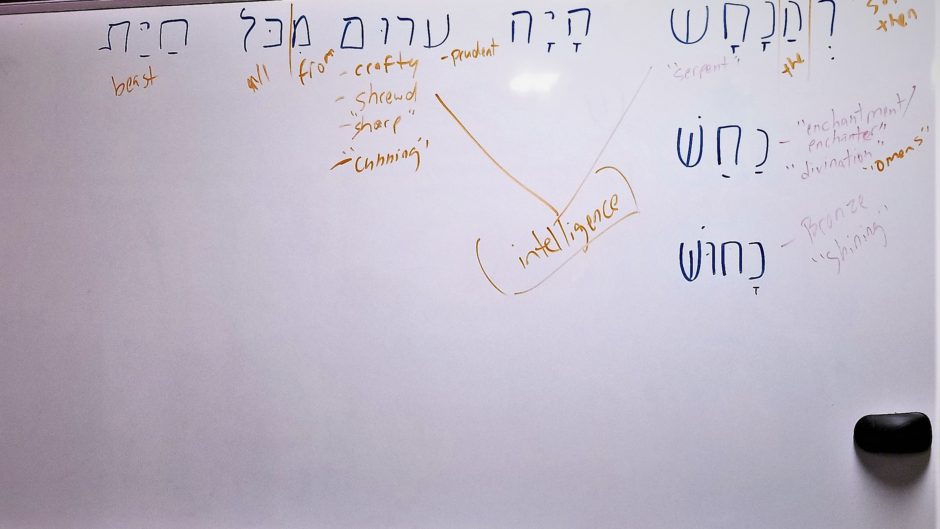 וְהַנָחָש הָיָה ערוּם מִכּל חַיַת
then
the
"serpent"
- prudent
- crafty
from
all
beast
- shrewd
- "sharp"
- "cunning"
נַחַשׁ - "enchantment/
enchanter"
"divination" "omens"
intelligence
נָחוּשׁ - Bronze
"shining"